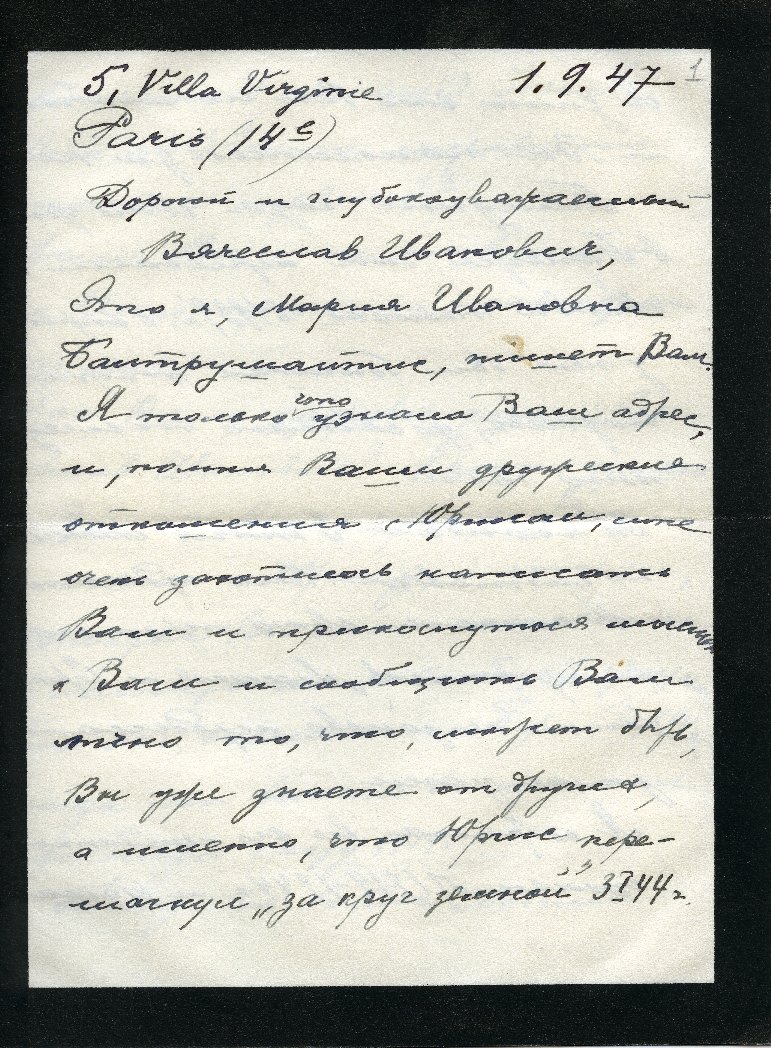 5, Villa Virginie 1.9.47 1
Paris (14e)
Дорогой и глубокоуважаемый
Вячеслав Иванович,
Это я, Мария Ивановна
Балтрушайтис, пишет Вам.
Я только что узнала Ваш адрес,
и, помня Ваши дружеские
отношения с Юргисом, мне
очень захотелось написать
Вам и прикоснуться мыслью
к Вам и сообщить Вам
лично то, что, может быть,
Вы уже знаете от других,
а именно, что Юргис пере-
шагнул „за круг земной" 3 I 44 г.